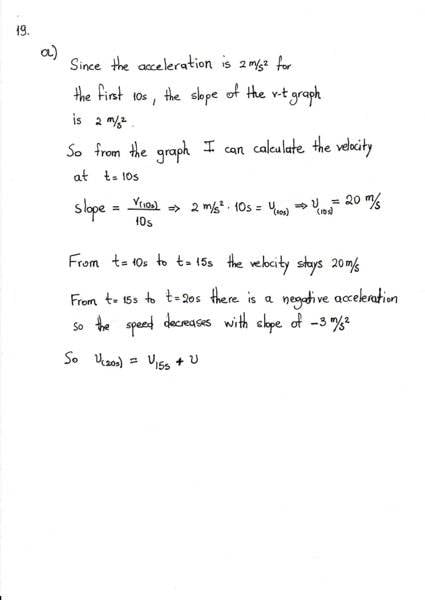 19.
a)
Since the acceleration is 2 m/s² for
the first 10s, the slope of the v-t graph
is 2 m/s².
So from the graph I can calculate the velocity
at t=10s
slope = V(10s)/10s ⇒ 2 m/s² · 10s = V(10s) ⇒ V(10s) = 20 m/s
From t=10s to t=15s the velocity stays 20m/s
From t=15s to t=20s there is a negative acceleration
so the speed decreases with slope of -3 m/s²
So V(20s) = V15s + V